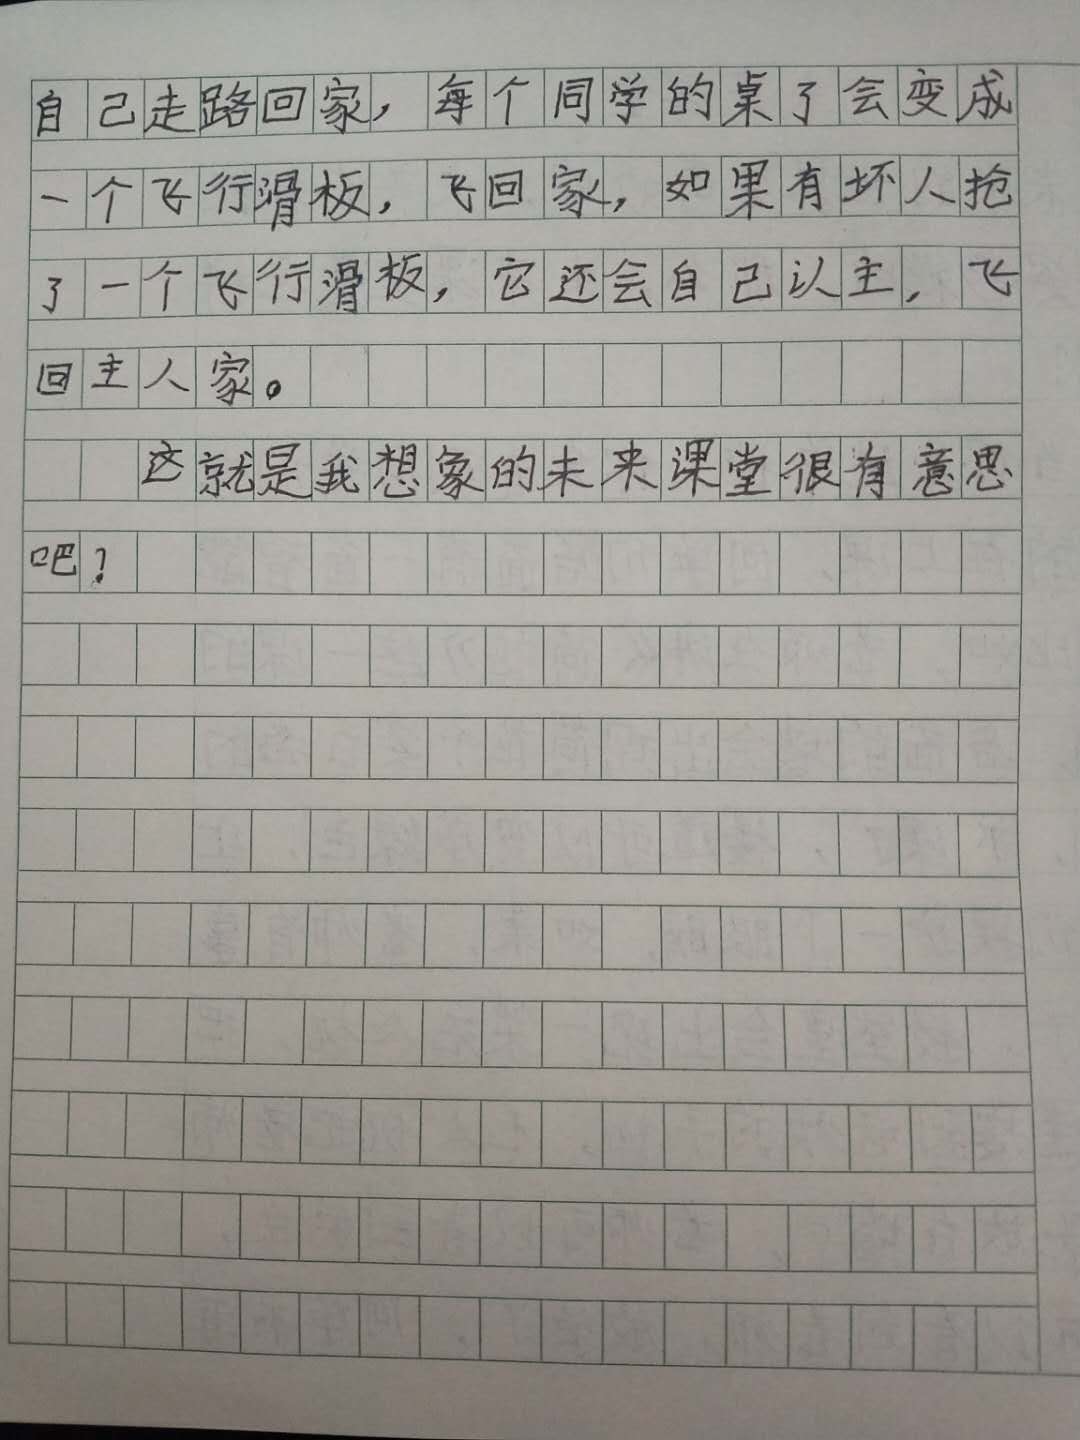 自己走路回家，每个同学的桌了会变成
一个飞行滑板，飞回家，如果有坏人抢
了一个飞行滑板，它还会自己以主，飞
回主人家。
这就是我想象的未来课堂很有意思
吧？